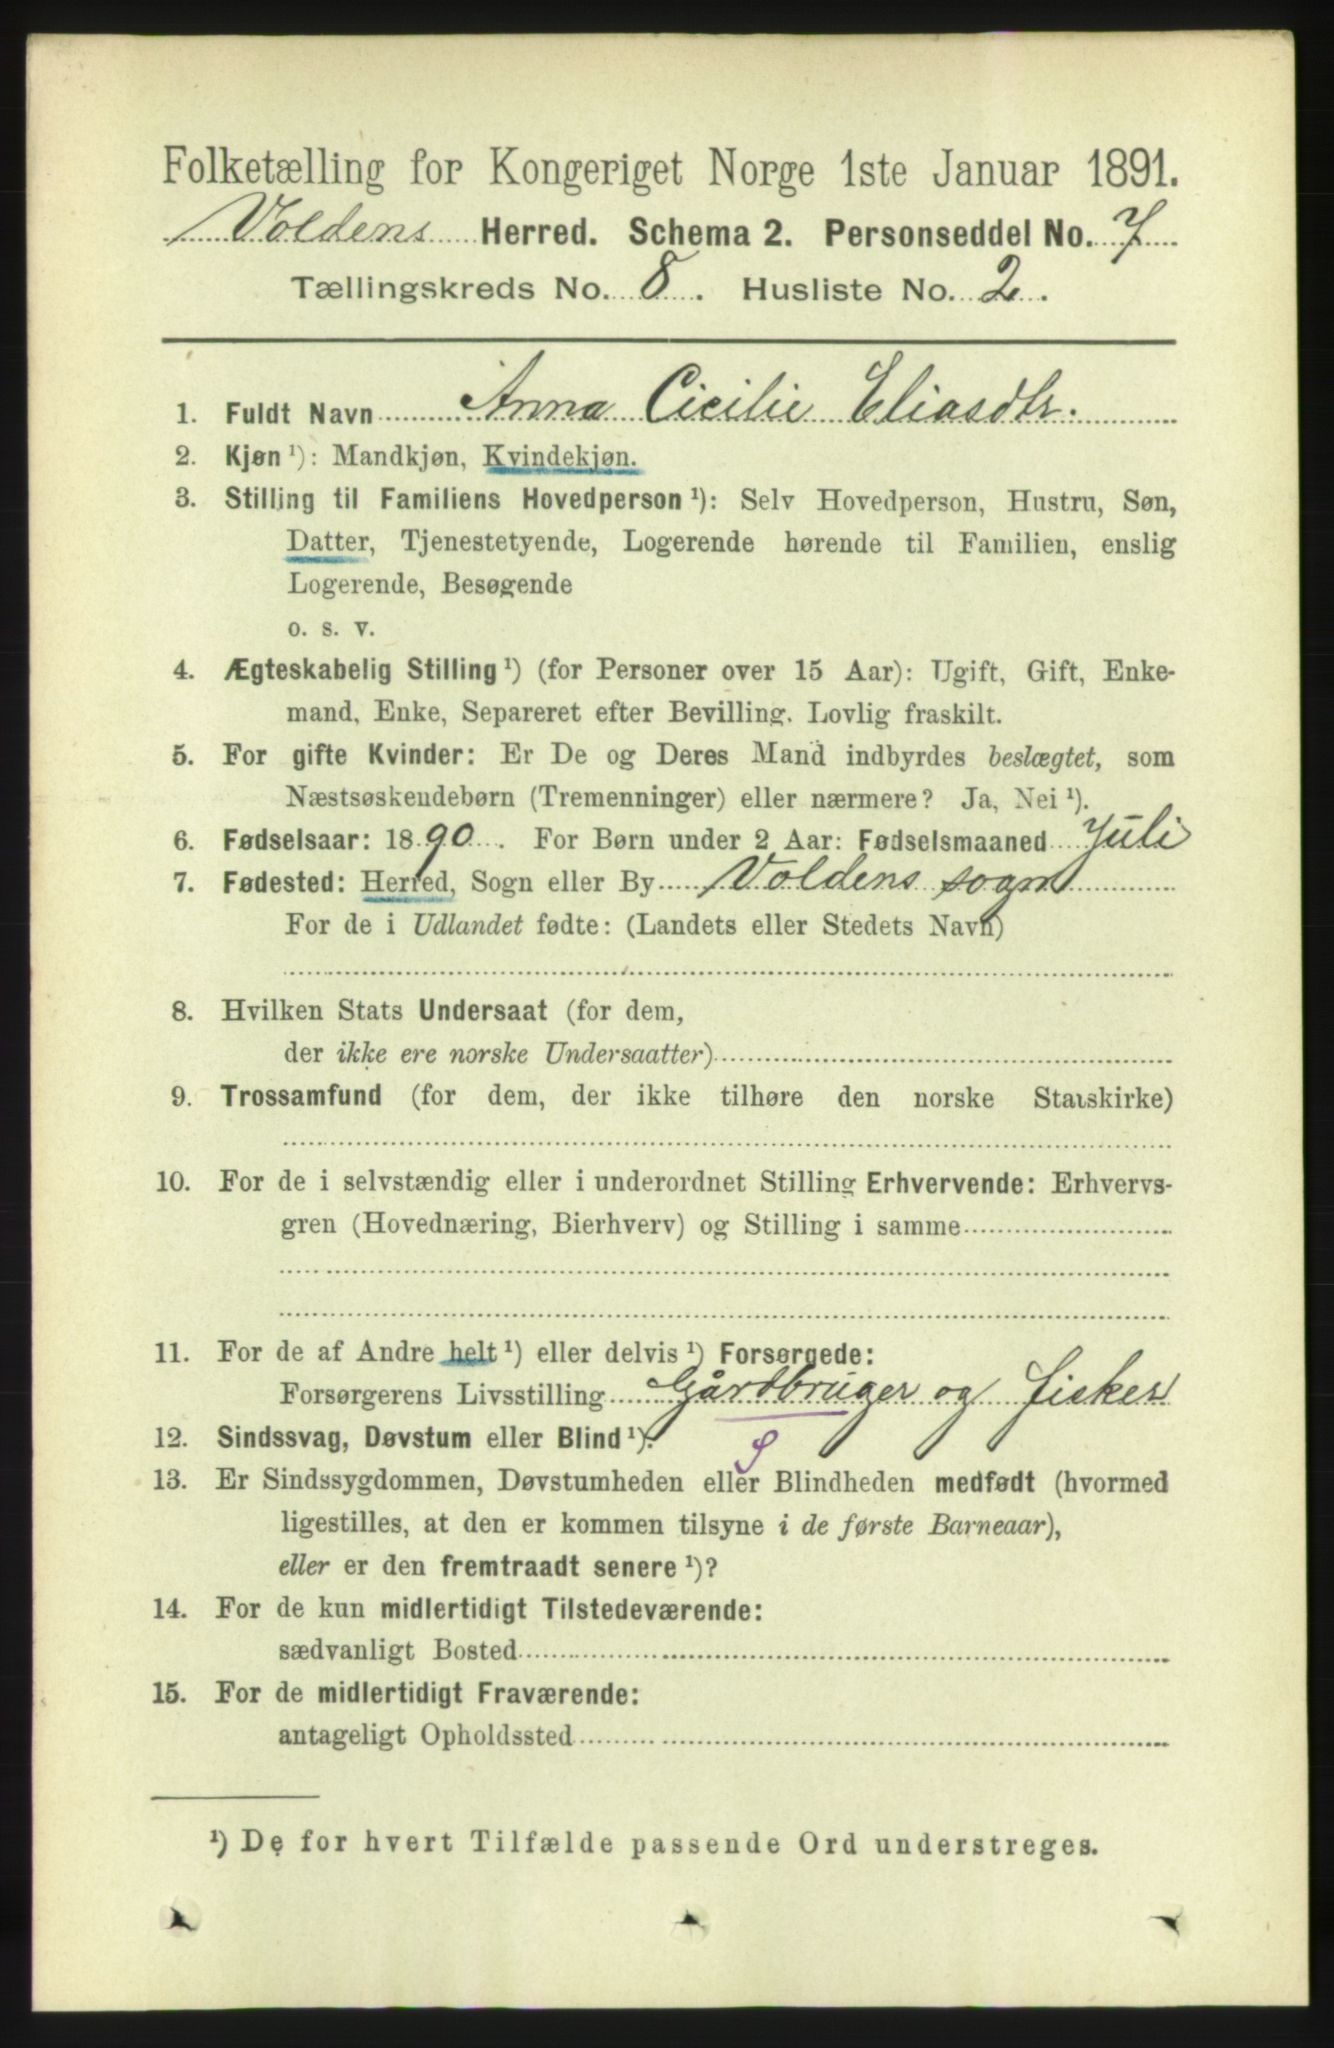 Folketælling for Kongeriget Norge 1ste Januar 1891.
Voldens Herred. Schema 2. Personseddel No. 7
Tællingskreds No. 8. Husliste No. 2.
1. Fuldt Navn Anna Cicilie Eliasdtr.
2. Kjøn ¹): Mandkjøn, Kvindekjøn.
3. Stilling til Familiens Hovedperson ¹): Selv Hovedperson, Hustru, Søn,
Datter, Tjenestetyende, Logerende hørende til Familien, enslig
Logerende, Besøgende
o. s. v.
4. Ægteskabelig Stilling ¹) (for Personer over 15 Aar): Ugift, Gift, Enke-
mand, Enke, Separeret efter Bevilling. Lovlig fraskilt.
5. For gifte Kvinder: Er De og Deres Mand indbyrdes beslægtet, som
Næstsøskendebørn (Tremenninger) eller nærmere? Ja, Nei ¹).
6. Fødselsaar: 1890. For Børn under 2 Aar: Fødselsmaaned Juli
7. Fødested: Herred, Sogn eller By Voldens sogn
For de i Udlandet fødte: (Landets eller Stedets Navn)
8. Hvilken Stats Undersaat (for dem,
der ikke ere norske Undersaatter)
9. Trossamfund (for dem, der ikke tilhøre den norske Statskirke)
10. For de i selvstændig eller i underordnet Stilling Erhvervende: Erhvervs-
gren (Hovednæring, Bierhverv) og Stilling i samme
11. For de af Andre helt ¹) eller delvis ¹) Forsørgede:
Forsørgerens Livsstilling Gårdbruger og fisker
12. Sindssvag, Døvstum eller Blind ¹).
13. Er Sindssygdommen, Døvstumheden eller Blindheden medfødt (hvormed
ligestilles, at den er kommen tilsyne i de første Barneaar),
eller er den fremtraadt senere ¹)?
14. For de kun midlertidigt Tilstedeværende:
sædvanligt Bosted
15. For de midlertidigt Fraværende:
antageligt Opholdssted
¹) De for hvert Tilfælde passende Ord understreges.